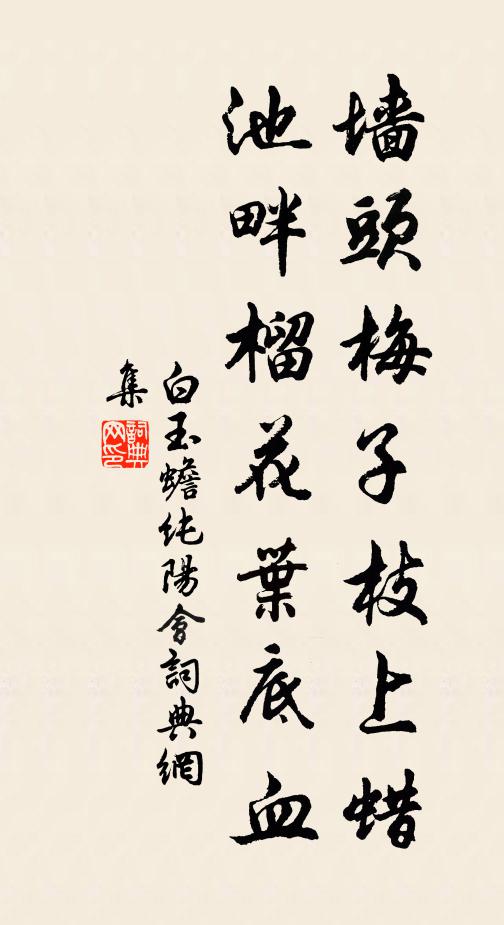 墙頭梅子枝上蜡
池畔榴花葉底血
白玉蟾纯陽會詞典網
集
詞典网印